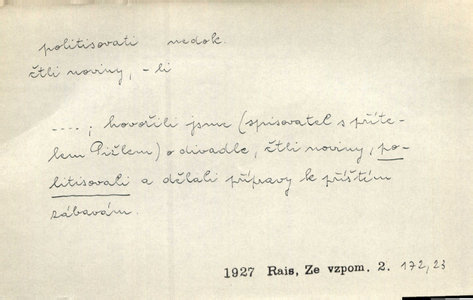 politisovati nedok.
čtli noviny, -li
....; hovořili jsme (spisovatel s příte-
lem Pišlem) o divadle, čtli noviny, po-
litisovali a dělali přípravy k příštím
zábavám.
1927 Rais, Ze vzpom. 2. 172,23